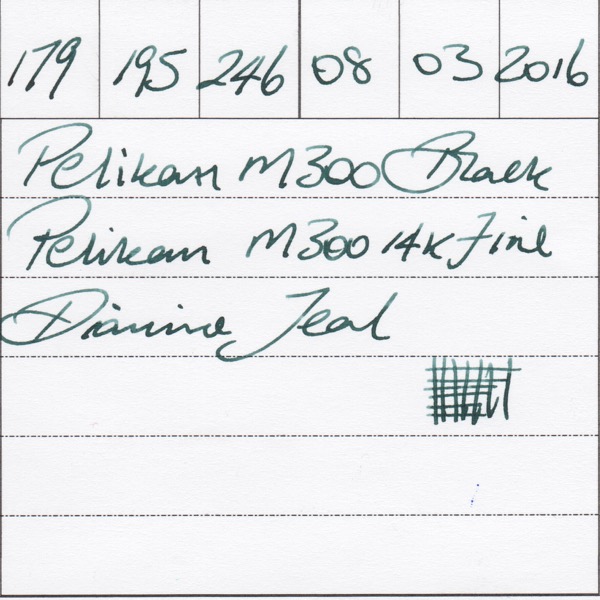 179 195 246 08 03 2016
Pelikan M300 Black
Pelikan M300 14K Fine
Diamine Teal